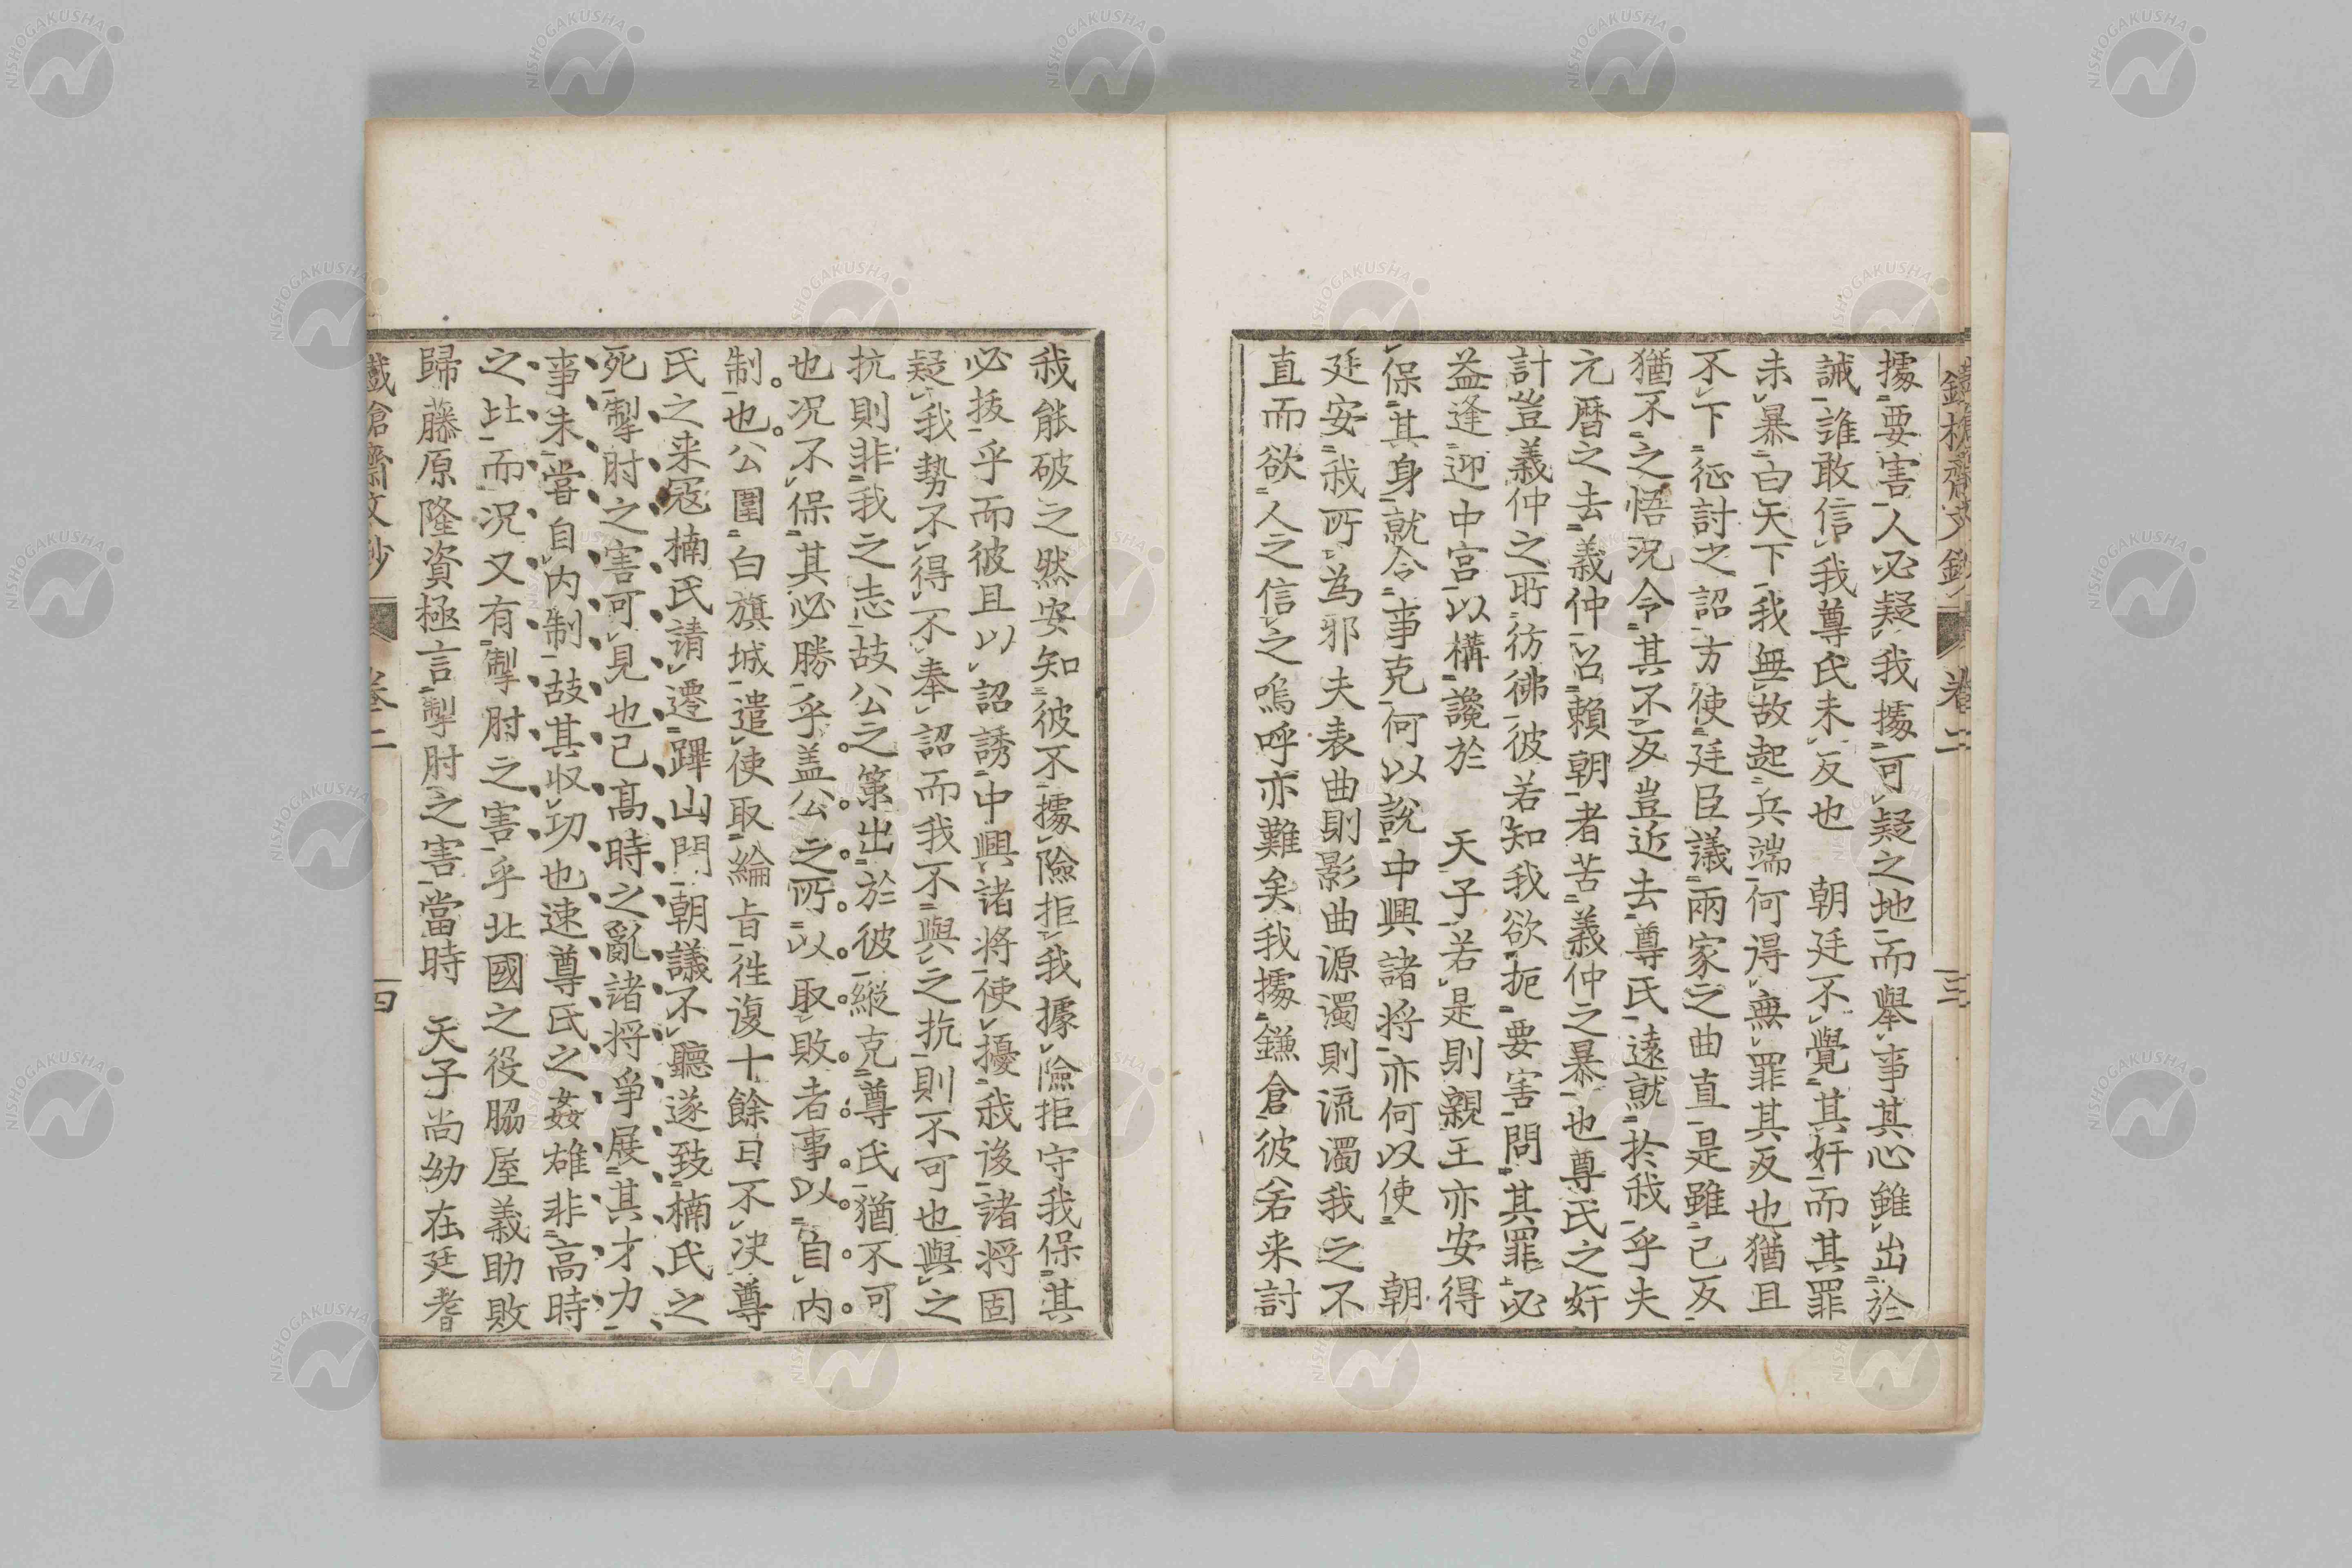 據要害人必疑我據可疑之地而舉事其心雖出於
誠誰敢信我尊氏未反也　朝廷不覺其奸而其罪
未暴白天下我無故起兵端何得無罪其反也猶且
不下征討之詔方使廷臣議兩家之曲直是雖已反
猶不之悟況令其不反豈近去尊氏遠就於我乎夫
元暦之去義仲召賴朝者苦義仲之暴也尊氏之奸
計豈義仲之所彷彿彼若知我欲扼要害問其罪必
益逢迎中宮以構讒於　天子若是則親王亦安得
保其身就令事克何以說中興諸将亦何以使　朝
延安我所為邪夫表曲則影曲源濁則流濁我之不
直而欲人之信之嗚呼亦難矣我據鎌倉彼若来討
我能破之然安知彼不據險拒我據險拒守我保其
必拔乎而彼且以詔誘中興諸将使擾我後諸将固
疑我勢不得不奉詔而我不與之抗則不可也與之
抗則非我之志故公之策出於彼縱克尊氏猶不可
也况不保其必勝乎盖公之所以取敗者事以自内
制也公圍白旗城遣使取綸旨徃復十餘日不决尊
氏之来寇楠氏請遷蹕山門朝議不聽遂致楠氏之
死掣肘之害可見也已高時之亂諸将爭展其才力
事未嘗自内制故其収功也速尊氏之姦雄非高時
之比而況又有掣肘之害乎北國之役脇屋義助敗
歸藤原隆資極言掣肘之害當時　天子尚幼在廷耆
卷二
四
卷二
三
NISHOGAKUSHA